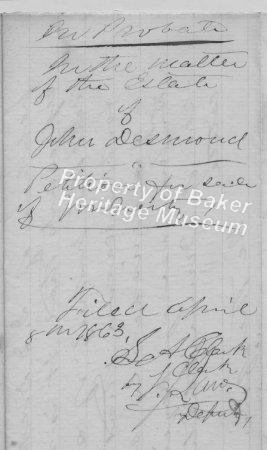 In Probate
In the matter
of the Estate
of
John Desmond
Petition for sale
of
Property of Baker
Heritage Museum
Filed April
8th 1863
S A Clark
Clerk
by
Deputy